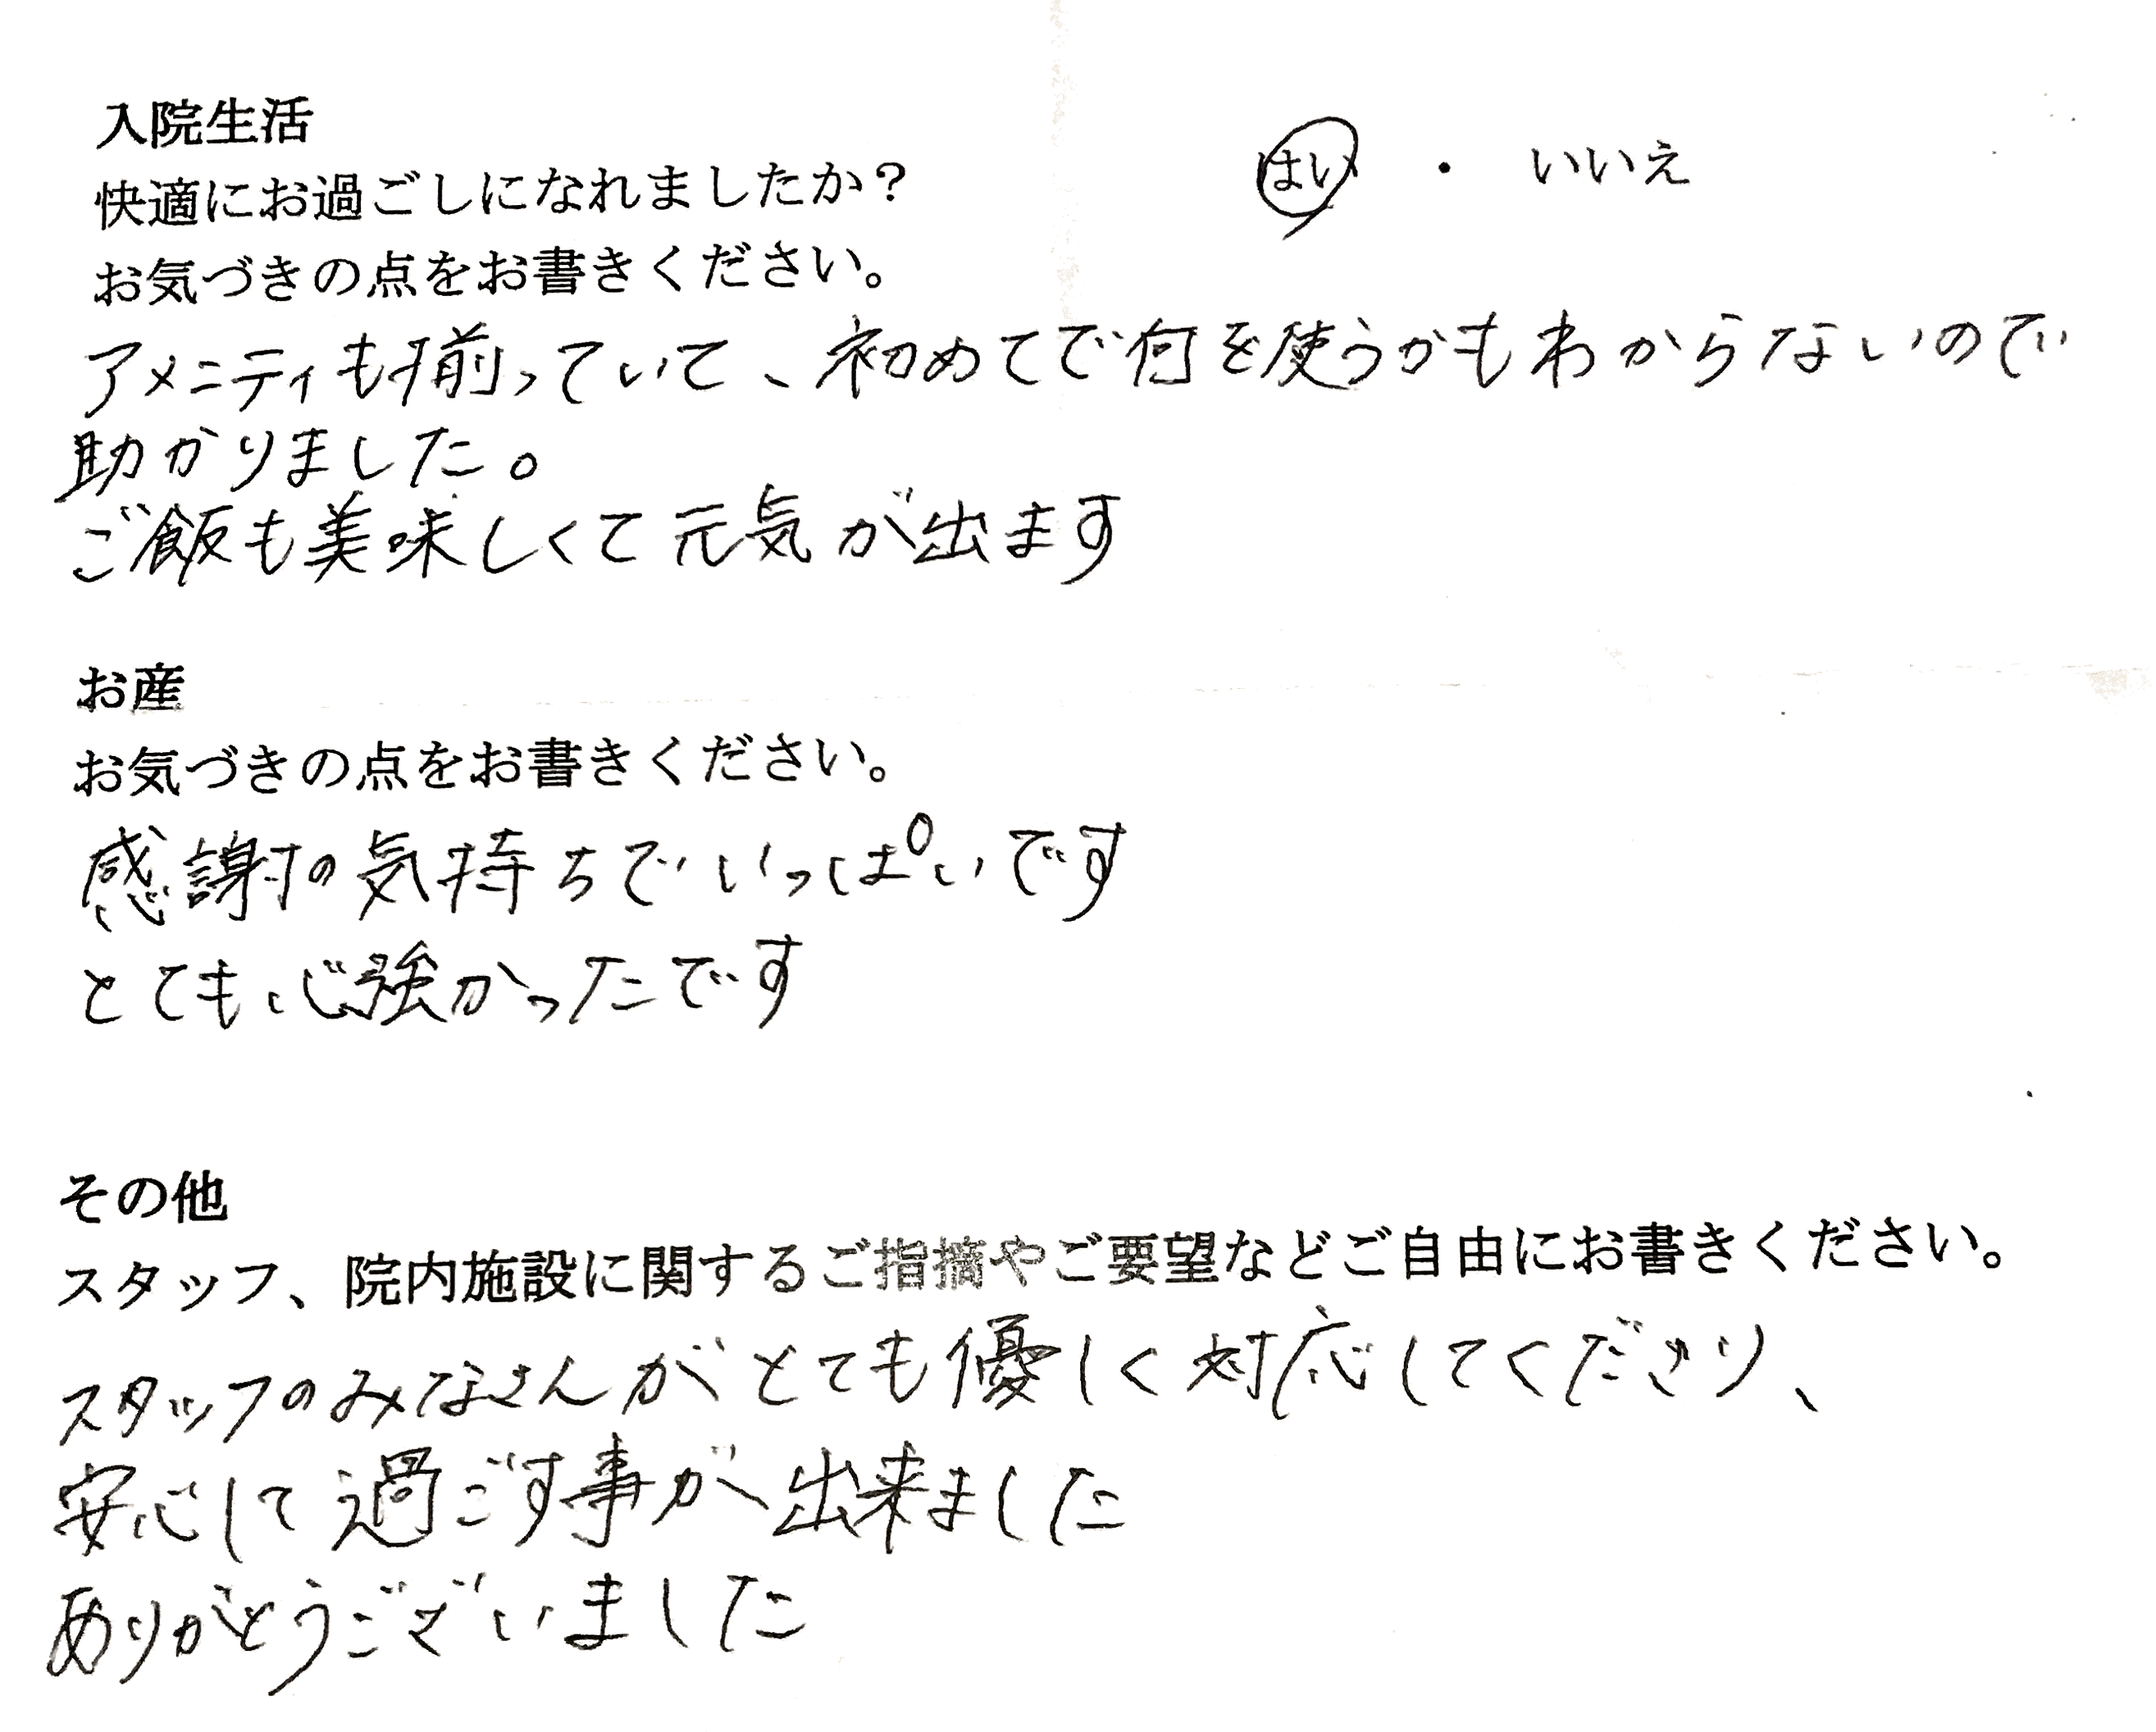 入院生活
快適にお過ごしになれましたか？ はい ・ いいえ
お気づきの点をお書きください。
アメニティも揃っていて、初めてで何を使うかもわからないので
助かりました。
ご飯も美味しくて元気が出ます
お産
お気づきの点をお書きください。
感謝の気持ちでいっぱいです
とても心強かったです
その他
スタッフ、院内施設に関するご指摘やご要望などご自由にお書きください。
スタッフのみなさんがとても優しく対応してくださり、
安心して過ごす事が出来ました
ありがとうございました